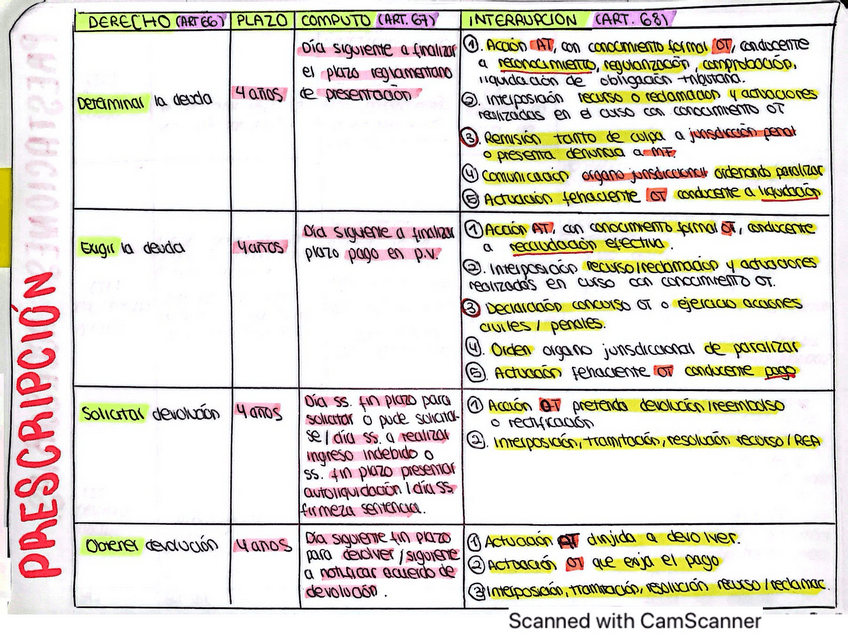 PRESCRIPCIÓN
DERECHO (ART 66)
PLAZO
COMPUTO (ART. 67)
INTERRUPCION (ART. 68)
Determinar la deuda
4 años
Día siguiente a finalizar
el plazo reglamentario
de presentación
①. Acción AT, con conocimiento formal OT, conducente
a reconocimiento, regularización, comprobación,
liquidación de obligación tributaria.
②. Interposición recurso o reclamación y actuaciones
realizadas en el curso con conocimiento OT
③. Remisión tanto de culpa a jurisdicción penal
o presenta denuncia a MF.
④ Comunicación organo jurisdiccional ordenando paralizar
⑤ Actuación fehaciente OT conducente a liquidación
Exigir la deuda
4 años
Día siguiente a finalizar
plazo pago en p.v.
① Acción AT, con conocimiento formal OT, conducente
a recaudación efectiva.
②. Interposición recurso/reclamación y actuaciones
realizadas en curso con conocimiento OT.
③ Declaración concurso OT o ejercicio acciones
civiles / penales.
④. Orden organo jurisdiccional de paralizar
⑤. Actuación fehaciente OT conducente pago
Solicitar devolución
4 años
Día ss. fin plazo para
solicitar o pude solicitar-
se / día ss. a realizar
ingreso indebido o
ss. fin plazo presentar
autoliquidación / día ss.
firmeza sentencia.
① Acción OT pretenda devolución/reembolso
o rectificación
②. Interposición, tramitación, resolución recurso / REA
Obtener devolución
4 años
Día siguiente fin plazo
para devolver / siguiente
a notificar acuerdo de
devolución.
① Actuación AT dirijida a devolver.
② Actuación OT que exija el pago
③ Interposición, tramitación, resolución recurso / reclamac.
Scanned with CamScanner